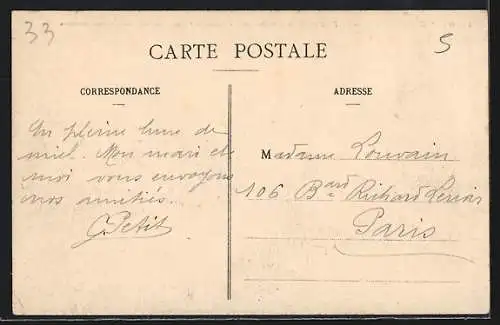 33
5
CARTE POSTALE
CORRESPONDANCE
ADRESSE
En pleine lune de
miel. Mon mari et
moi vous envoyons
nos amitiés.
G. Petit
Madame Louvain
106 Bard Richard Lenoir
Paris